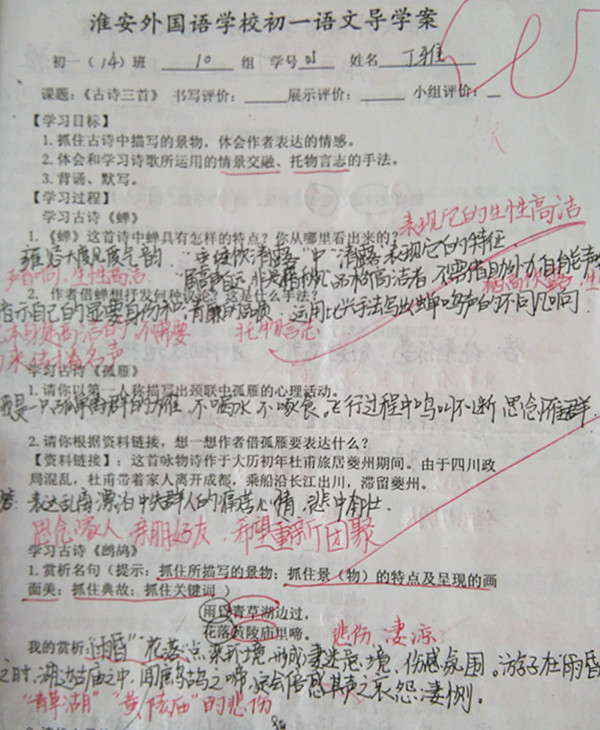 淮安外国语学校初一语文导学案
初一（14）班 10 组 学号 01 姓名 丁雅
课题:《古诗三首》 书写评价: 展示评价: 小组评价:
【学习目标】
1. 抓住古诗中描写的景物，体会作者表达的情感。
2. 体会和学习诗歌所运用的情景交融、托物言志的手法。
3. 背诵、默写。
【学习过程】
学习古诗《蝉》
1.《蝉》这首诗中蝉具有怎样的特点？你从哪里看出来的？
表现它的生性高洁
雍容大度风度气韵．"垂緌饮清露"中"清露"表现它的特征
声音响，生性高洁
居高声自远，非是藉秋风 品格高洁者，不需借助外力 自能声
2. 作者借蝉想抒发何种议论？这是什么手法？
暗示自己的显要身份和清廉的高损．运用比兴手法写出蝉鸣声的不同凡响．
本身是高洁的，不需要 托物言志
来传扬名声
学习古诗《孤雁》
1. 请你以第一人称描写出颈联中孤雁的心理活动。
我是一只 群的孤雁，不喝水不啄食。飞行过程中鸣叫不断 思念雁群．
2. 请你根据资料链接，想一想作者借孤雁要表达什么？
【资料链接】: 这首咏物诗作于大历初年杜甫旅居夔州期间。由于四川政
局混乱，杜甫带着家人离开成都，乘船沿长江出川，滞留夔州。
答: 表达乱离漂泊中失群人的痛苦心情，悲中有壮．
思念家人、亲朋好友，希望重新团聚
学习古诗《鹧鸪》
1. 赏析名句（提示: 抓住所描写的景物; 抓住景（物）的特点及呈现的画
面美; 抓住典故; 抓住关键词）
雨昏青草湖边过，
花落黄陵庙里啼。 悲伤、凄凉
我的赏析: "雨昏""花落"点染环境，形成凄迷意境、伤感氛围。游子在雨昏
之时，湖边古庙之中，闻鹧鸪之啼，定会倍感其声之哀怨凄恻。
"青草湖""黄陵庙"的悲伤